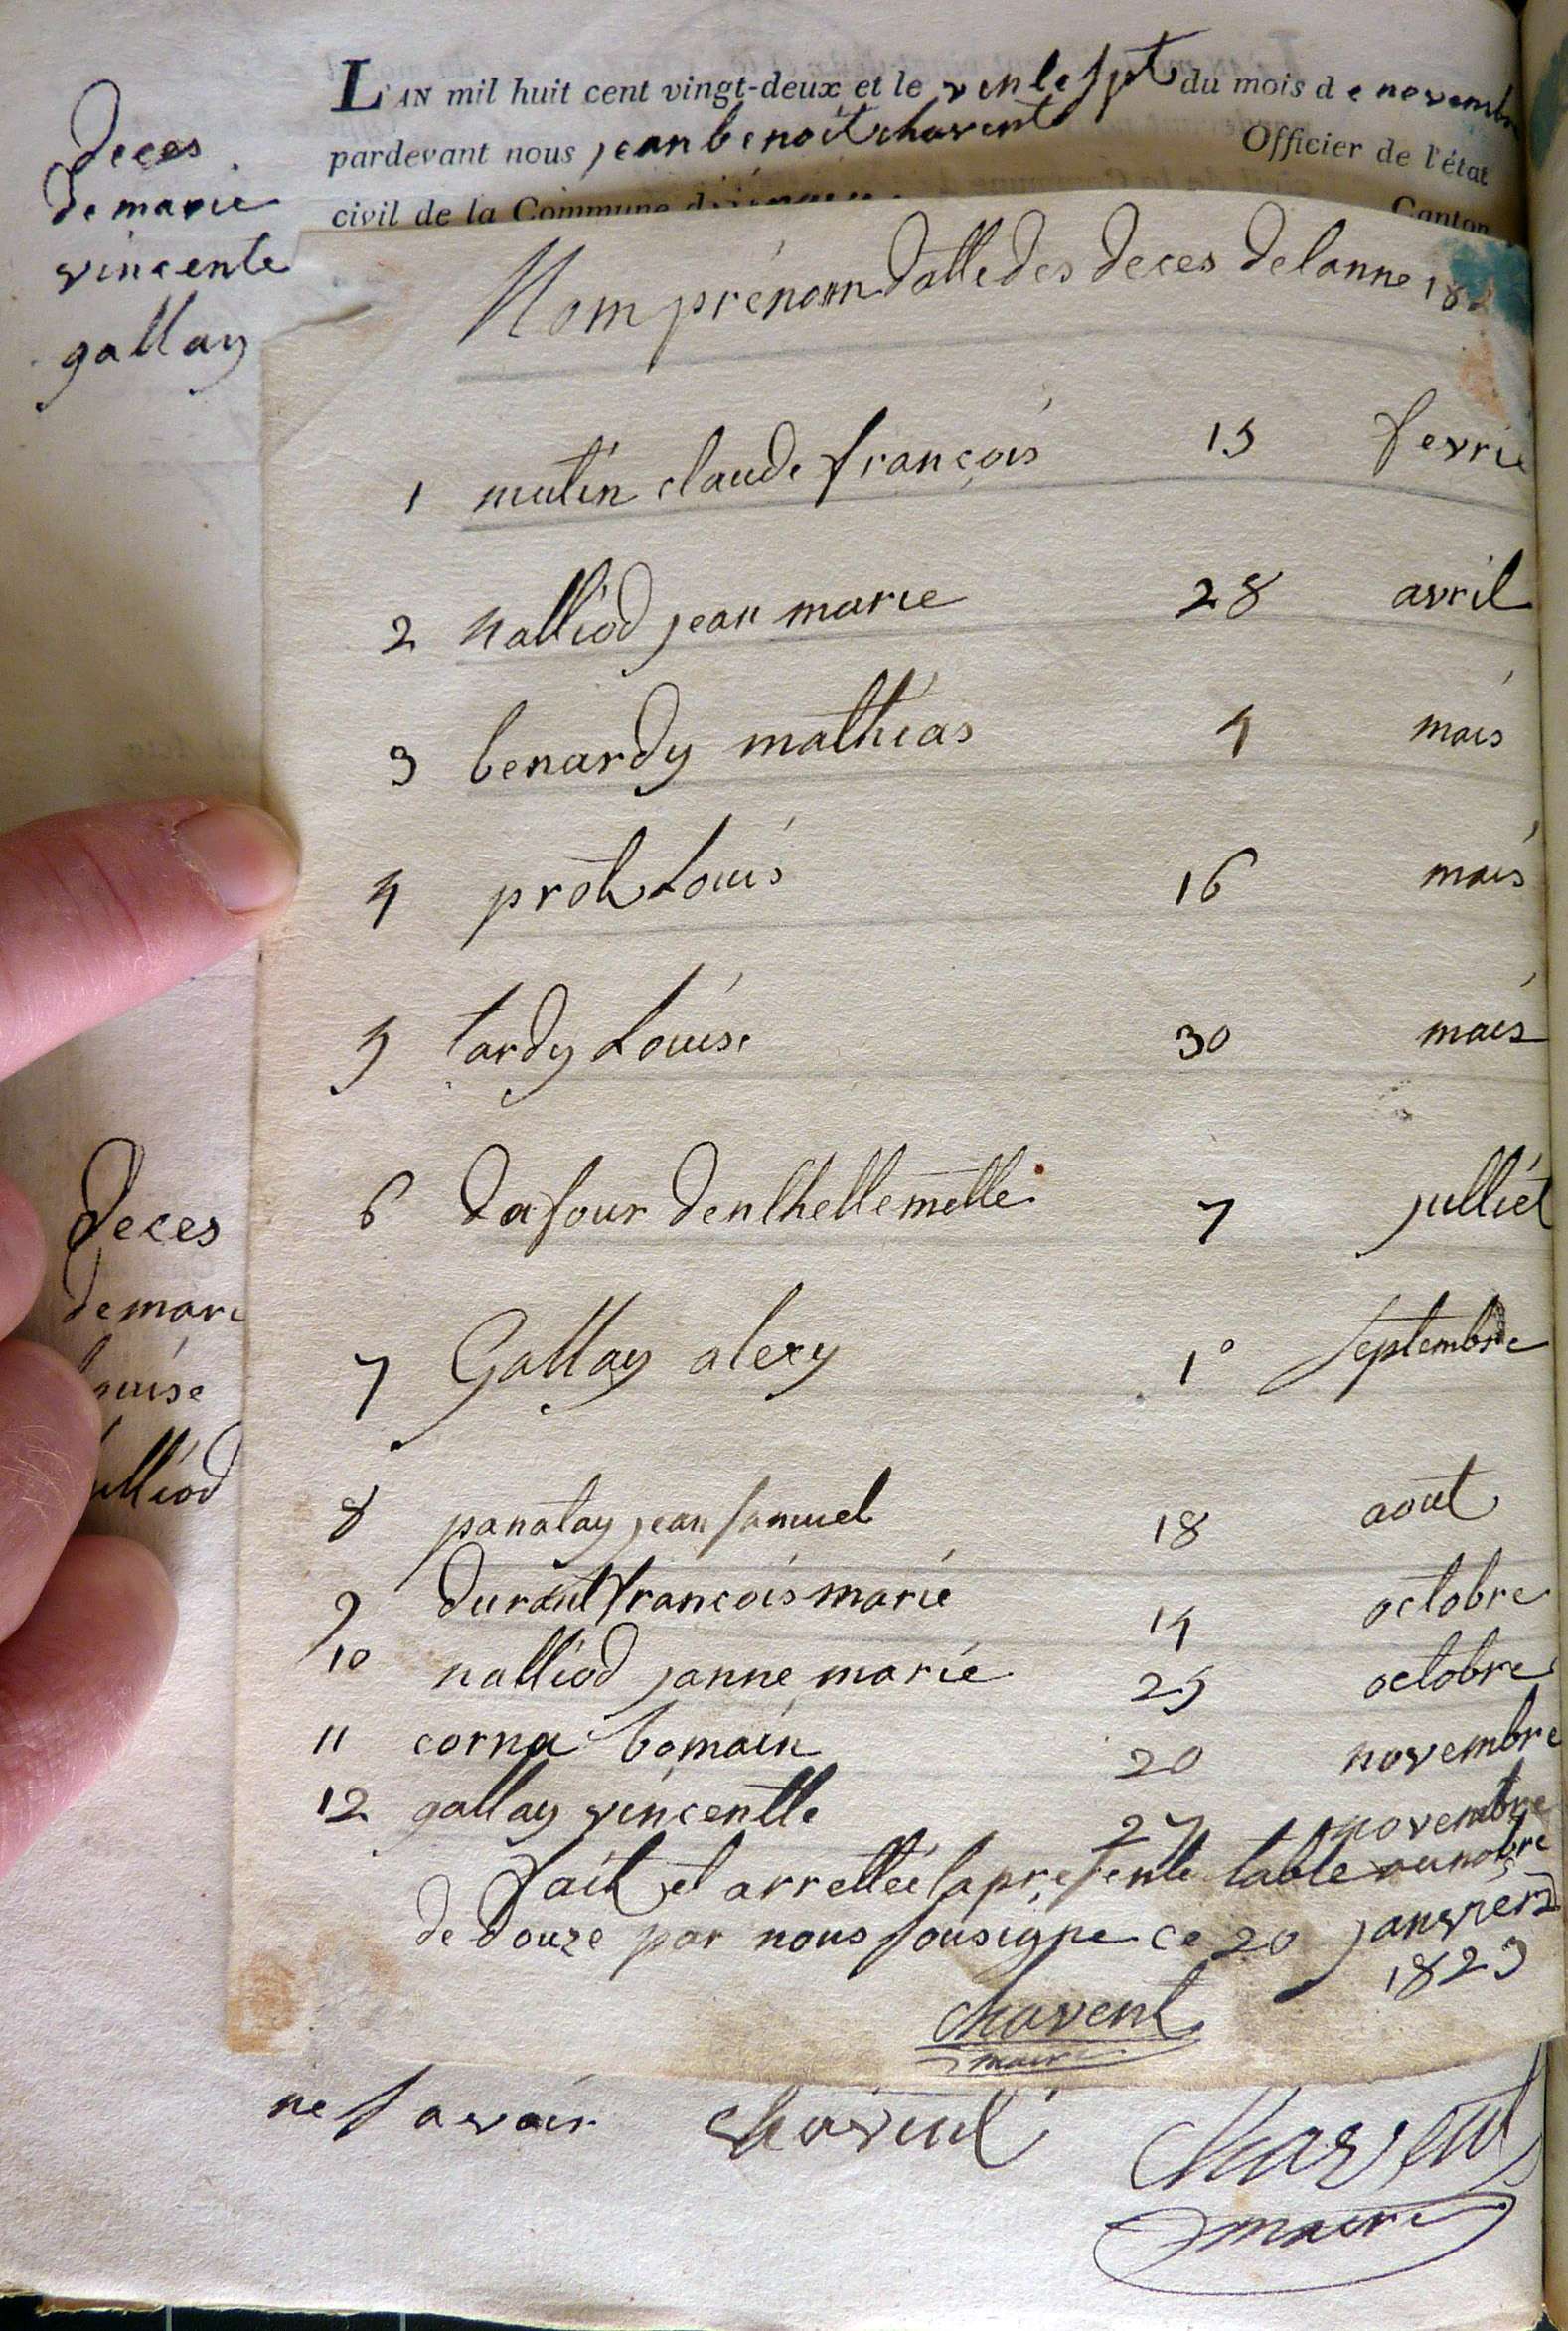 L'AN mil huit cent vingt-deux et le vente sept du mois de novembre
pardevant nous jean benoit chavent Officier de l'état
civil de la Commune Canton
deces
de marie
vincente
gallay
Nom prénom datte des deces de lanne 182
1 mutin claude françois 15 fevrie
2 nalliod jean marie 28 avril
3 benardy mathias 4 mais
4 prot Louis 16 mais
5 tardy Louise 30 mais
6 dafour 7 julliet
7 Gallay alexy 1° septembre
8 panatay jean samuel 18 aout
9 durant françois marie 14 octobre
10 nalliod janne marie 25 octobre
11 corna bomain 20 novembre
12 gallay vincentte 27 novembre
fait et arrettée la presente table au nobre
de douze par nous sousigne ce 20 janvier
1823
chavent
maire
deces
de mari
ouise
alliod
ne savoir chavent chavent
maire